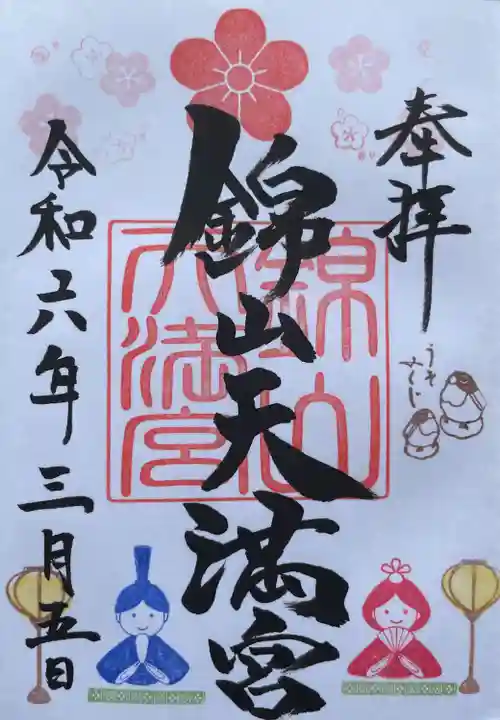 奉拝
うそ
みくじ
錦山天満宮
錦山
天満宮
令和六年三月五日